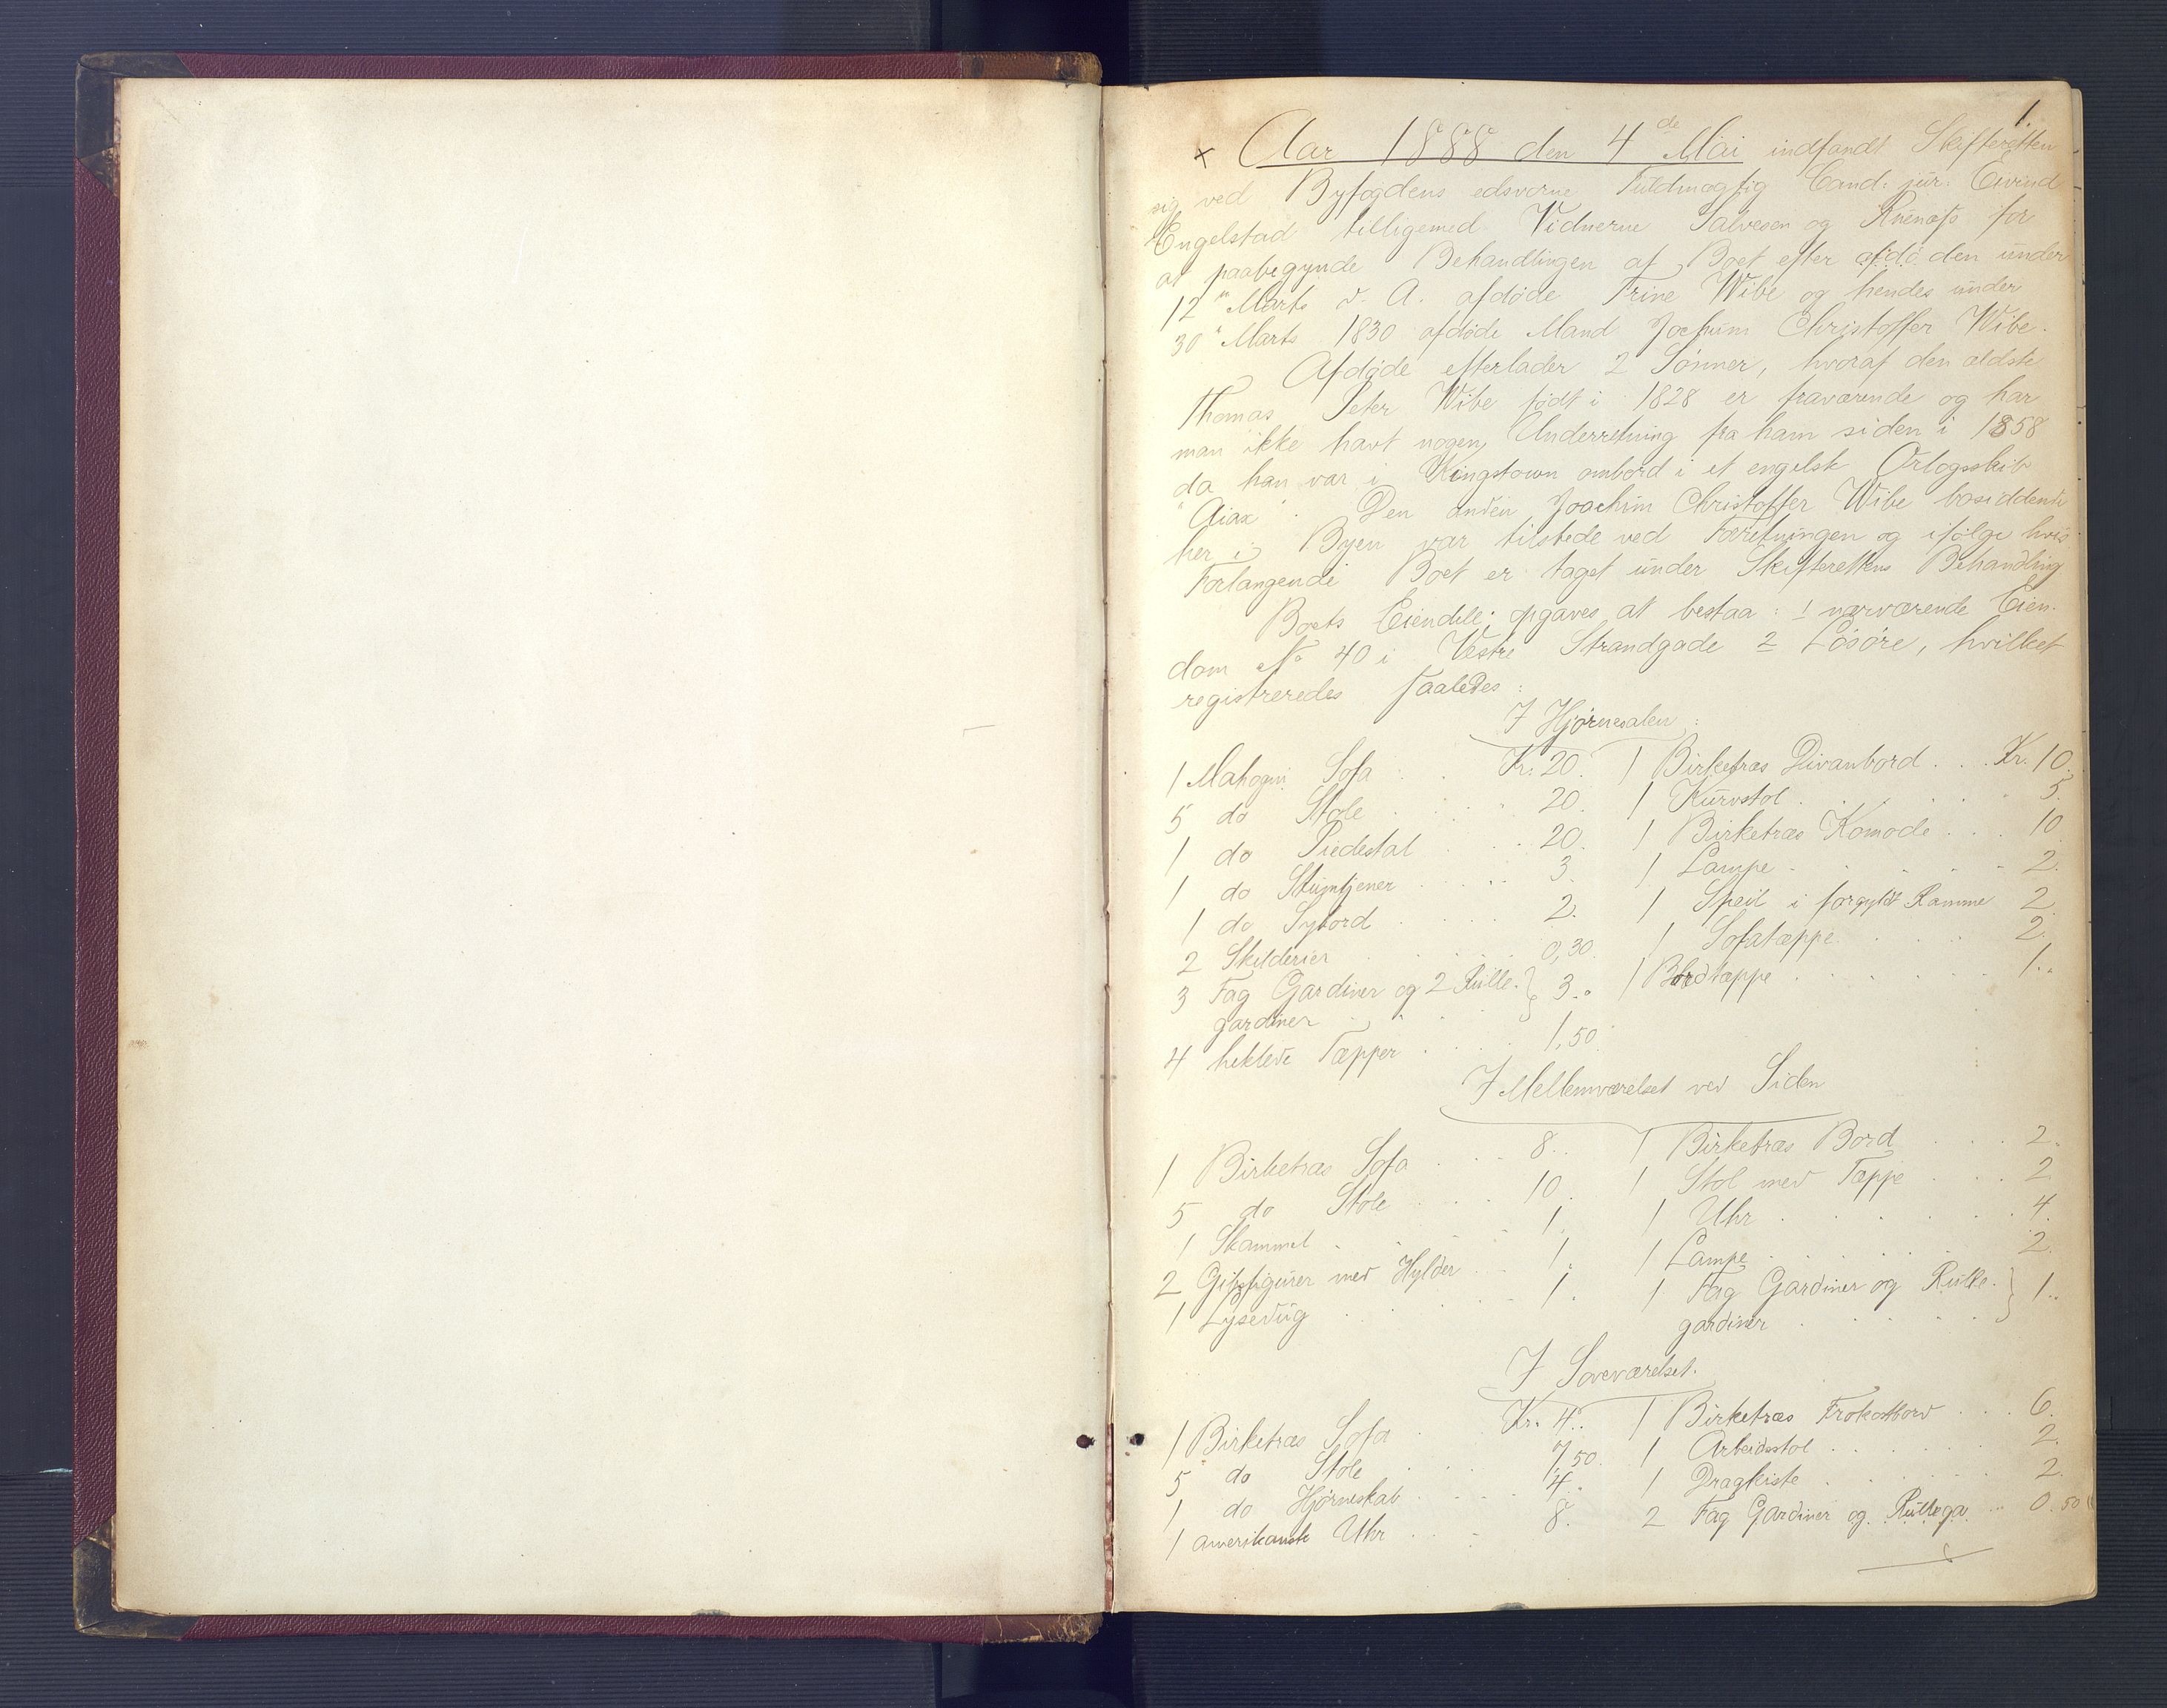 1.
x Aar 1888 den 4de Mai indfandt Skifteretten
sig ved Byfogdens edsvorne Fuldmægtig Cand: jur: Eivind
Engelstad tilligemed Vidnerne Salvesen og Ruenæss for
at paabegynde Behandlingen af Boet efter afdø den under
12" Marts d. A. afdøde Trine Wibe og hendes under
30" Marts 1830 afdøde Mand Jochum Christoffer Wibe.
Afdøde efterlader 2 Sønner, hvoraf den ældste
Thomas Peter Wibe født i 1828 er fraværende og har
man ikke havt nogen Underretning fra ham siden i 1858
da han var i Kingstown ombord i et engelsk Orlogsskib
"Aiax". Den anden Joachim Christoffer Wibe bosiddende
her i Byen var tilstede ved Forretningen og ifølge hvis
Forlangende Boet er taget under Skifterettens Behandling
Boets Eiendele opgaves at bestaa: 1 nærværende Eien-
dom No 40 i Vestre Strandgade 2 Løsøre, hvilket
registreredes saaledes:
I Hjørnesalen:
1 Mahogni Sofa . . Kr. 20. 1 Birketræs Divanbord . . . Kr. 10.
5 do Stole . . . . 20. 1 Kurvstol . . . . 5.
1 do Piedestal . . . 20. 1 Birketræs Komode . . . 10
1 do Stumtjener . . . . 3. 1 Lampe . . . . 2.
1 do Sybord . . . . 2. 1 Speil i forgyldt Ramme 2.
2 Skilderier . . . . 0,30. 1 Sofatæppe . . . 2.
3 Fag Gardiner og 2 Rulle- } 3.. 1 Bordtæppe . . . . 1..
gardiner . . . .
4 heklede Tæpper . . . . 1,50.
I Mellemværelset ved Siden
1 Birketræs Sofa . . . 8.. 1 Birketræs Bord . . . 2.
5 do Stole . . . 10. 1 Stol med Tæppe . . . 2
1 Skammel . . . . 1. 1 Uhr . . . . . 4.
2 Gipsfigurer med Hylder . . 1. 1 Lampe . . . . . 2.
1 Lysedug . . . . 1. 1 Fag Gardiner og Rulle- } 1..
gardiner . . . . .
I Soveværelset.
1 Birketræs Sofa . Kr. 4.. 1 Birketræs Frokostbord . . . 6.
5 do Stole . . . 7,50. 1 Arbeidsstol . . . . . 2.
1 do Hjørneskab . . . . 4.. 1 Dragkiste . . . . . 2.
1 amerikansk Uhr . . . 8. 2 Fag Gardiner og Rullega . . 0.50